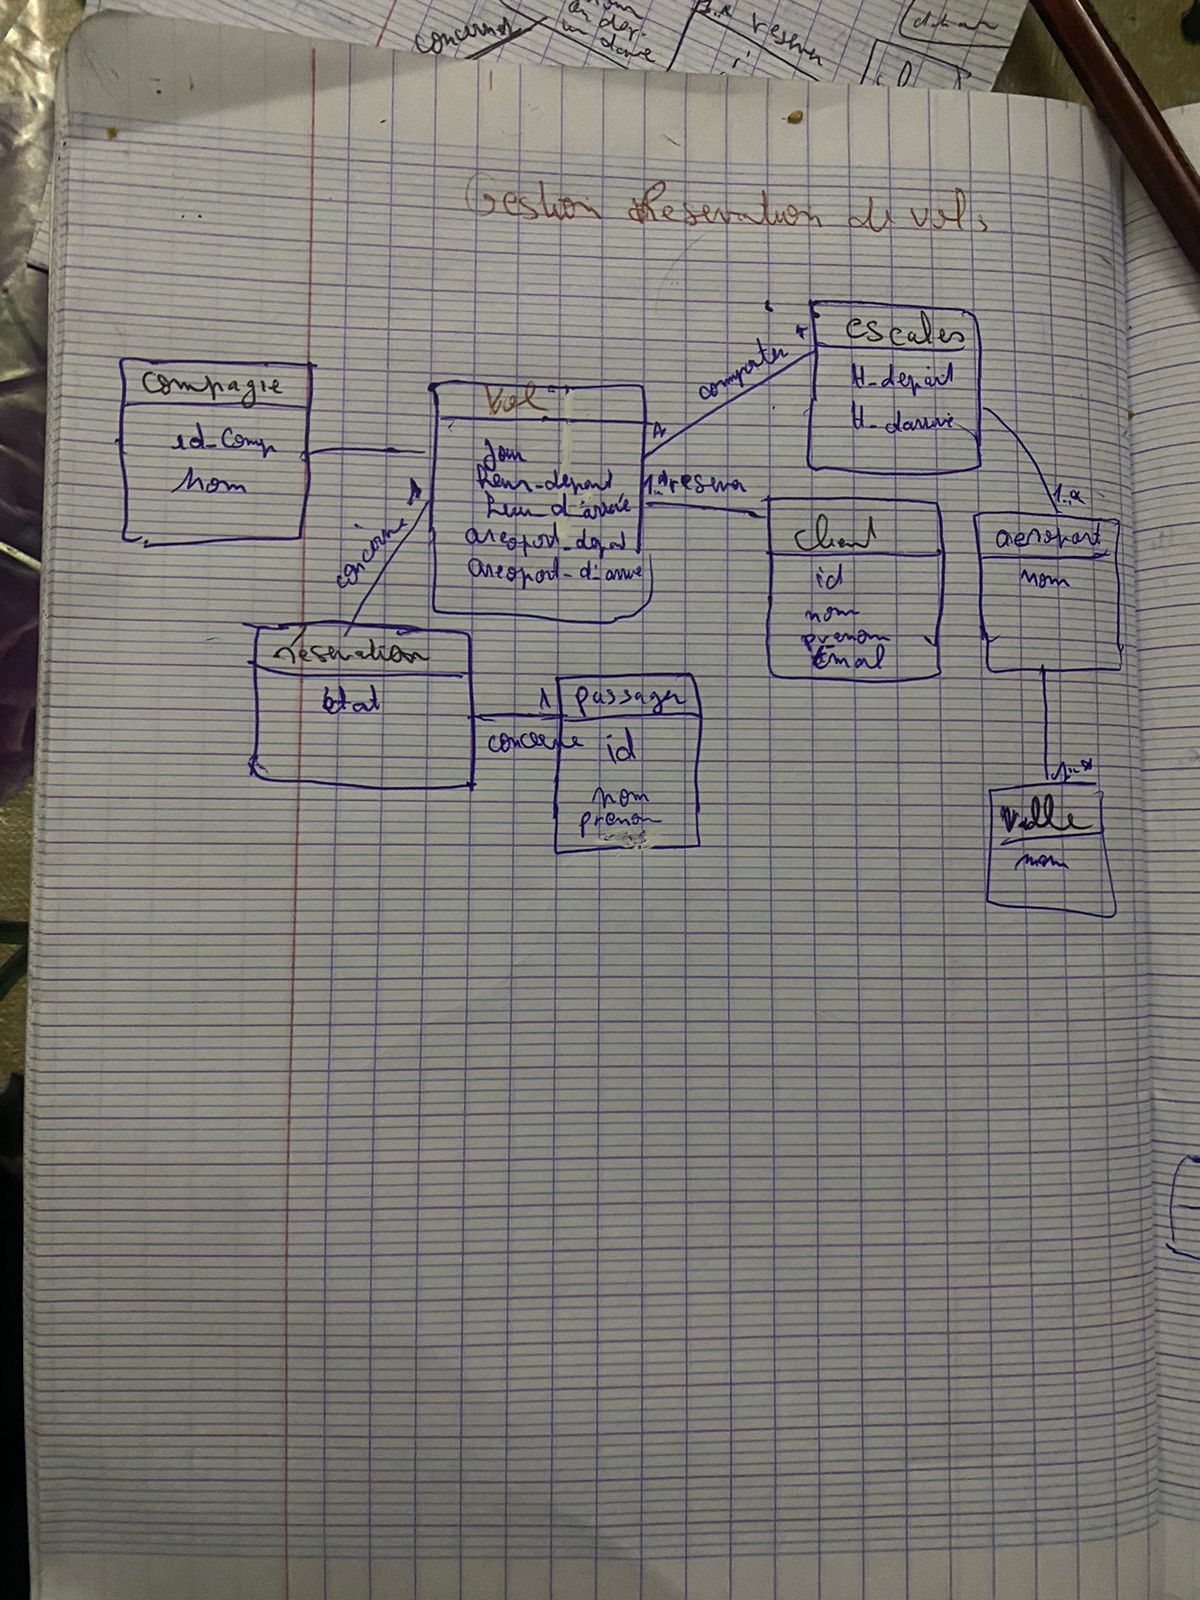 concernet
un dame
reserver
Gestion Reservation de vols
compagie
id_Comp
Nom
Vol
Jour
heur-depart
heur_d'arrivée
areoport_depat
areoport-d'arrive
comporter
*
1
escales
H-depart
H-darrivé
1..*
reserver
client
id
nom
prenom
Email
1..*
aeroport
nom
1..*
ville
nom
concerne
1
réservation
état
1
concerne
passager
id
nom
prenom